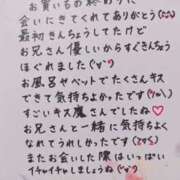 お買いものの終わりに
会いにきてくれてありがとう(^^)
最初きんちょうしてたけど
お兄さん優しいからすぐきんちょう
ほぐれました(^o^)
お風呂やベットでたくさんキス
できて気持ちよかったです(^^)
すごいキス魔さんでしたね♡
お兄さんと一緒に気持ちく
なれてうれしかったです
またお会いした際はいっぱい
イチャイチャしましょうね(^o^)